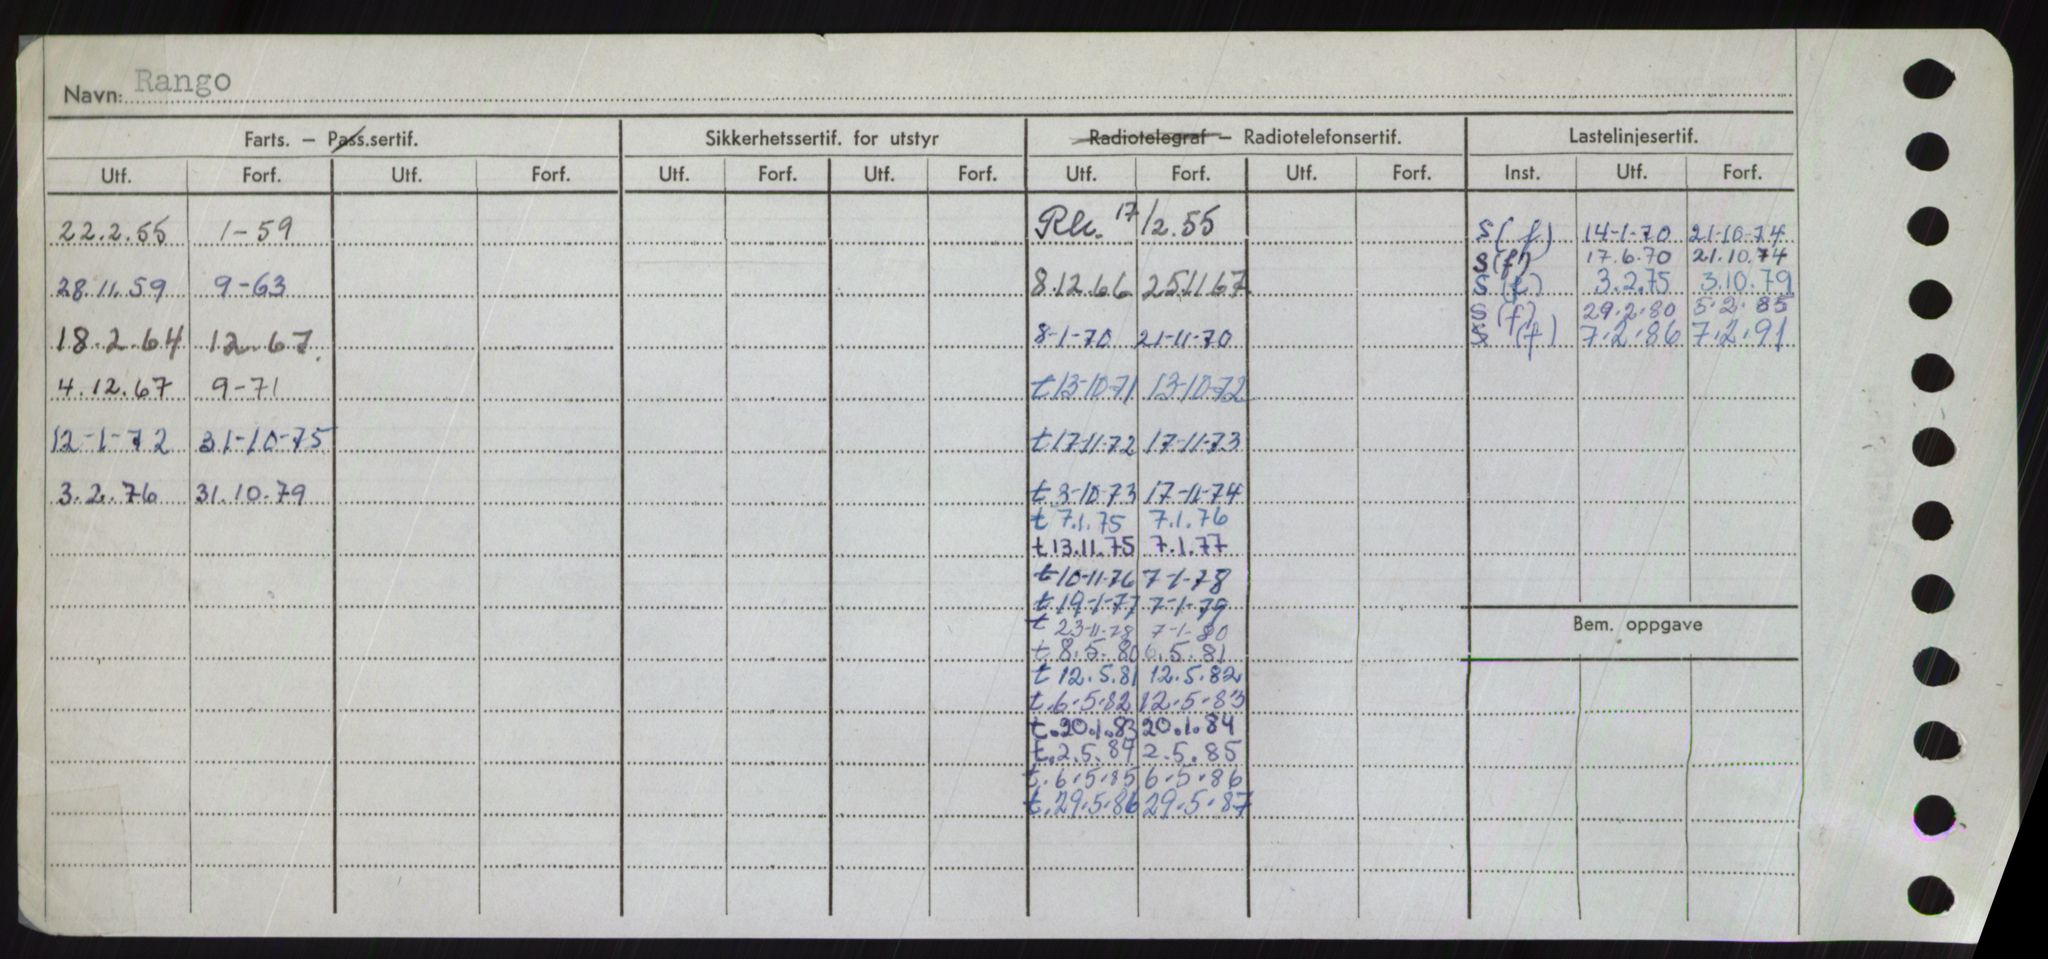 Navn: Rango
Farts. – Pass.sertif. Sikkerhetssertif. for utstyr Radiotelegraf – Radiotelefonsertif. Lastelinjesertif.
Utf. Forf. Utf. Forf. Utf. Forf. Utf. Forf. Utf. Forf. Utf. Forf. Inst. Utf. Forf.
22.2.55 1-59 17/2.55 S(f) 14-1-70 21-10-74
S(f) 17.6.70 21.10.74
28.11.59 9-63 8.12.66 25.11.67 S(f) 3.2.75 3.10.79
S(f) 29.2.80 5.2.85
18.2.64 12.67. 8-1-70 21-11-70 S (f) 7.2.86 7.2.91
4.12.67 9-71 t 13-10-71 13-10-72
12-1-72 31-10-75 t 17-11-72 17-11-73
3.2.76 31.10.79 t 3-10-73 17-11-74
t 7.1.75 7.1.76
t 13.11.75 7.1.77
t 10-11-76 7-1-78
t 19-1-77 7-1-79
t 23-11-78 7-1-80
Bem. oppgave
t 8.5.80 6.5.81
t 12.5.81 12.5.82
t.6.5.82 12.5.83
t.20.1.83 20.1.84
t.2.5.84 2.5.85
t.6.5.85 6.5.86
t.29.5.86 29.5.87